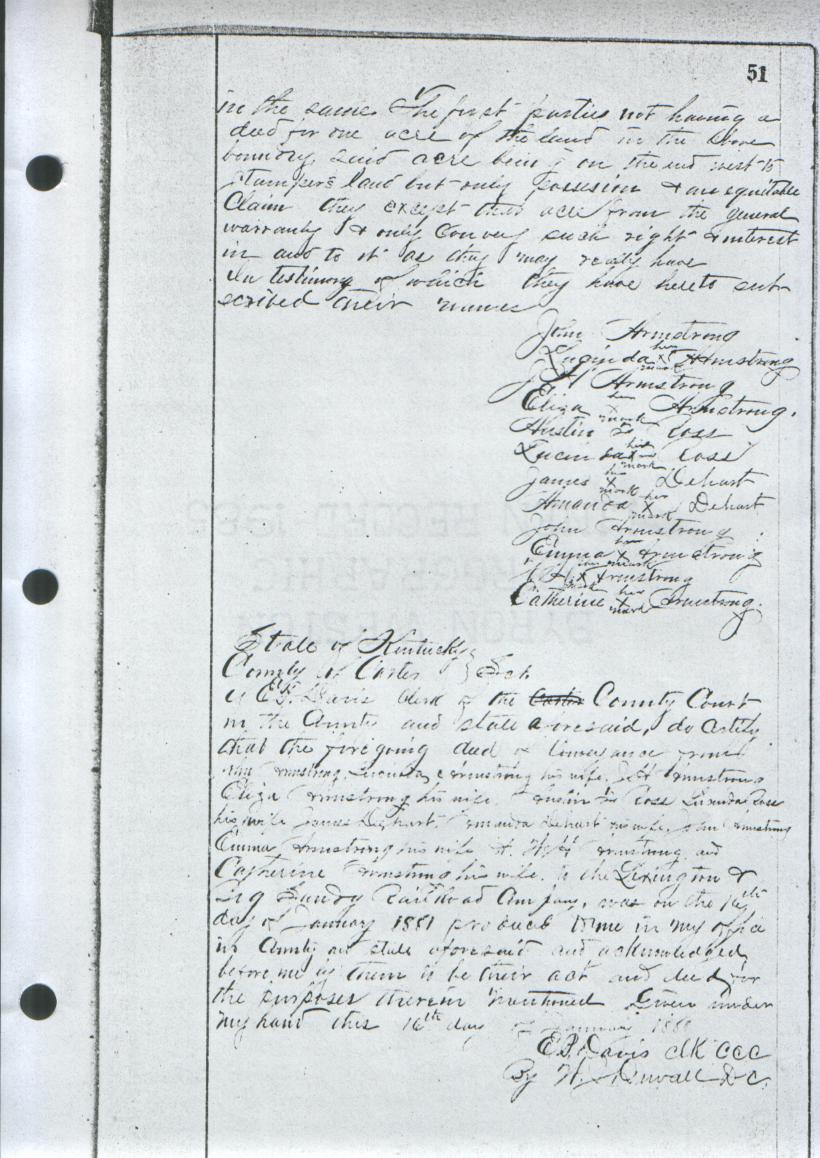 51
in the same. The first parties not having a
deed for one acre of the land in the above
boundry, said acre being on the end next to
Stumpers land but only possesion & an equitable
Claim they except that acre from the general
warranty & only Convey such right & interest
in and to it as they may really have
In testimony of which they have hereto sub-
scribed their names
John Armstrong
Lucinda her x mark Armstrong
J H Armstrong
Eliza her mark Armstrong.
Austin Coss
Lucinda her mark Coss
James his x mark Dehart
Amanda her x mark Dehart
John Armstrong
Emma her x mark Armstrong
H x Armstrong
Catherine her x mark Armstrong.
State of Kentucky
County of Carter } Sct
I E.P. Davis Clerk of the County Court
in the County and state aforesaid, do certify
that the foregoing deed of conveyance from
John Armstrong, Lucinda Armstrong his wife, J H Armstrong
Eliza Armstrong his wife, Austin Coss Lucinda Coss
his wife James Dehart, Amanda Dehart his wife, John Armstrong
Emma Armstrong his wife Armstrong and
Catherine Armstrong his wife, to the Lexington &
Big Sandy Railroad Company, was on the 16th
day of January 1881 produced to me in my office
in County and state aforesaid and acknowledged
before me by them to be their act and deed for
the purposes therein mentioned Given under
my hand this 16th day of January 188
E.P. Davis Clk CCC
By W. Duvall D.C.